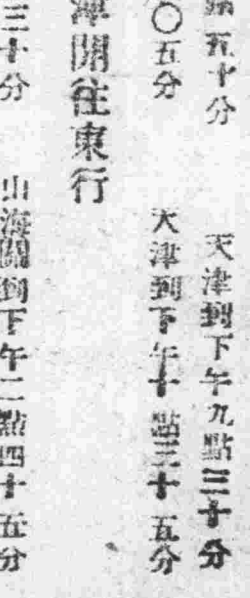 五十分　天津到下午九點三十分
〇五分　天津到下午十點三十五分
開往東行
三十分　山海關到下午二點四十五分